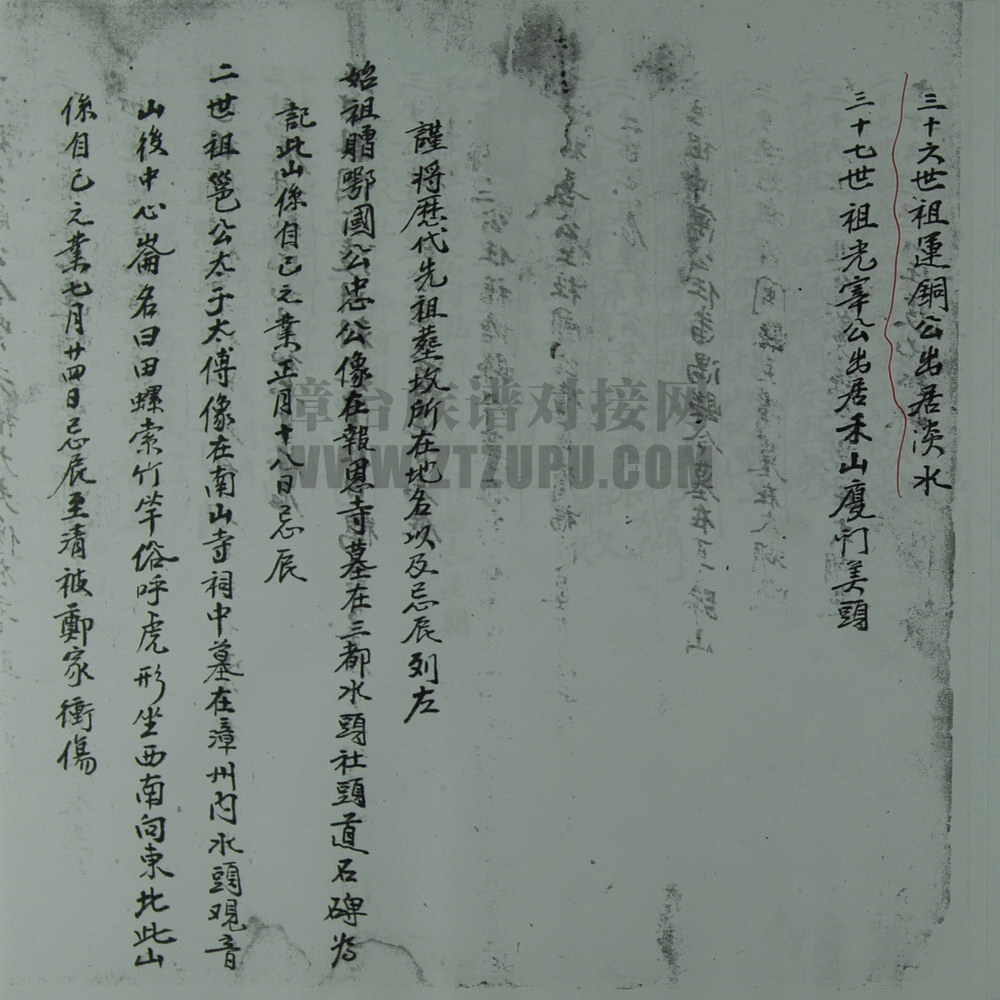 三十六世祖運銅公出居淡水
三十七世祖光宰公出居禾山廈门美頭
謹將歷代先祖塟坟所在地名以及忌辰列左
始祖贈鄂國公忠公像在報恩寺墓在三都水頭社頭道石碑为
記此山係自己元業正月十八日忌辰
二世祖邕公太子太傅像在南山寺祠中墓在漳州内水頭观音
山後中心崙名曰田螺索竹竿俗呼虎形坐西南向東北此山
係自己元業七月廿四日忌辰至清被鄭家衝傷
漳台族谱对接网
WWW.ZTZUPU.COM